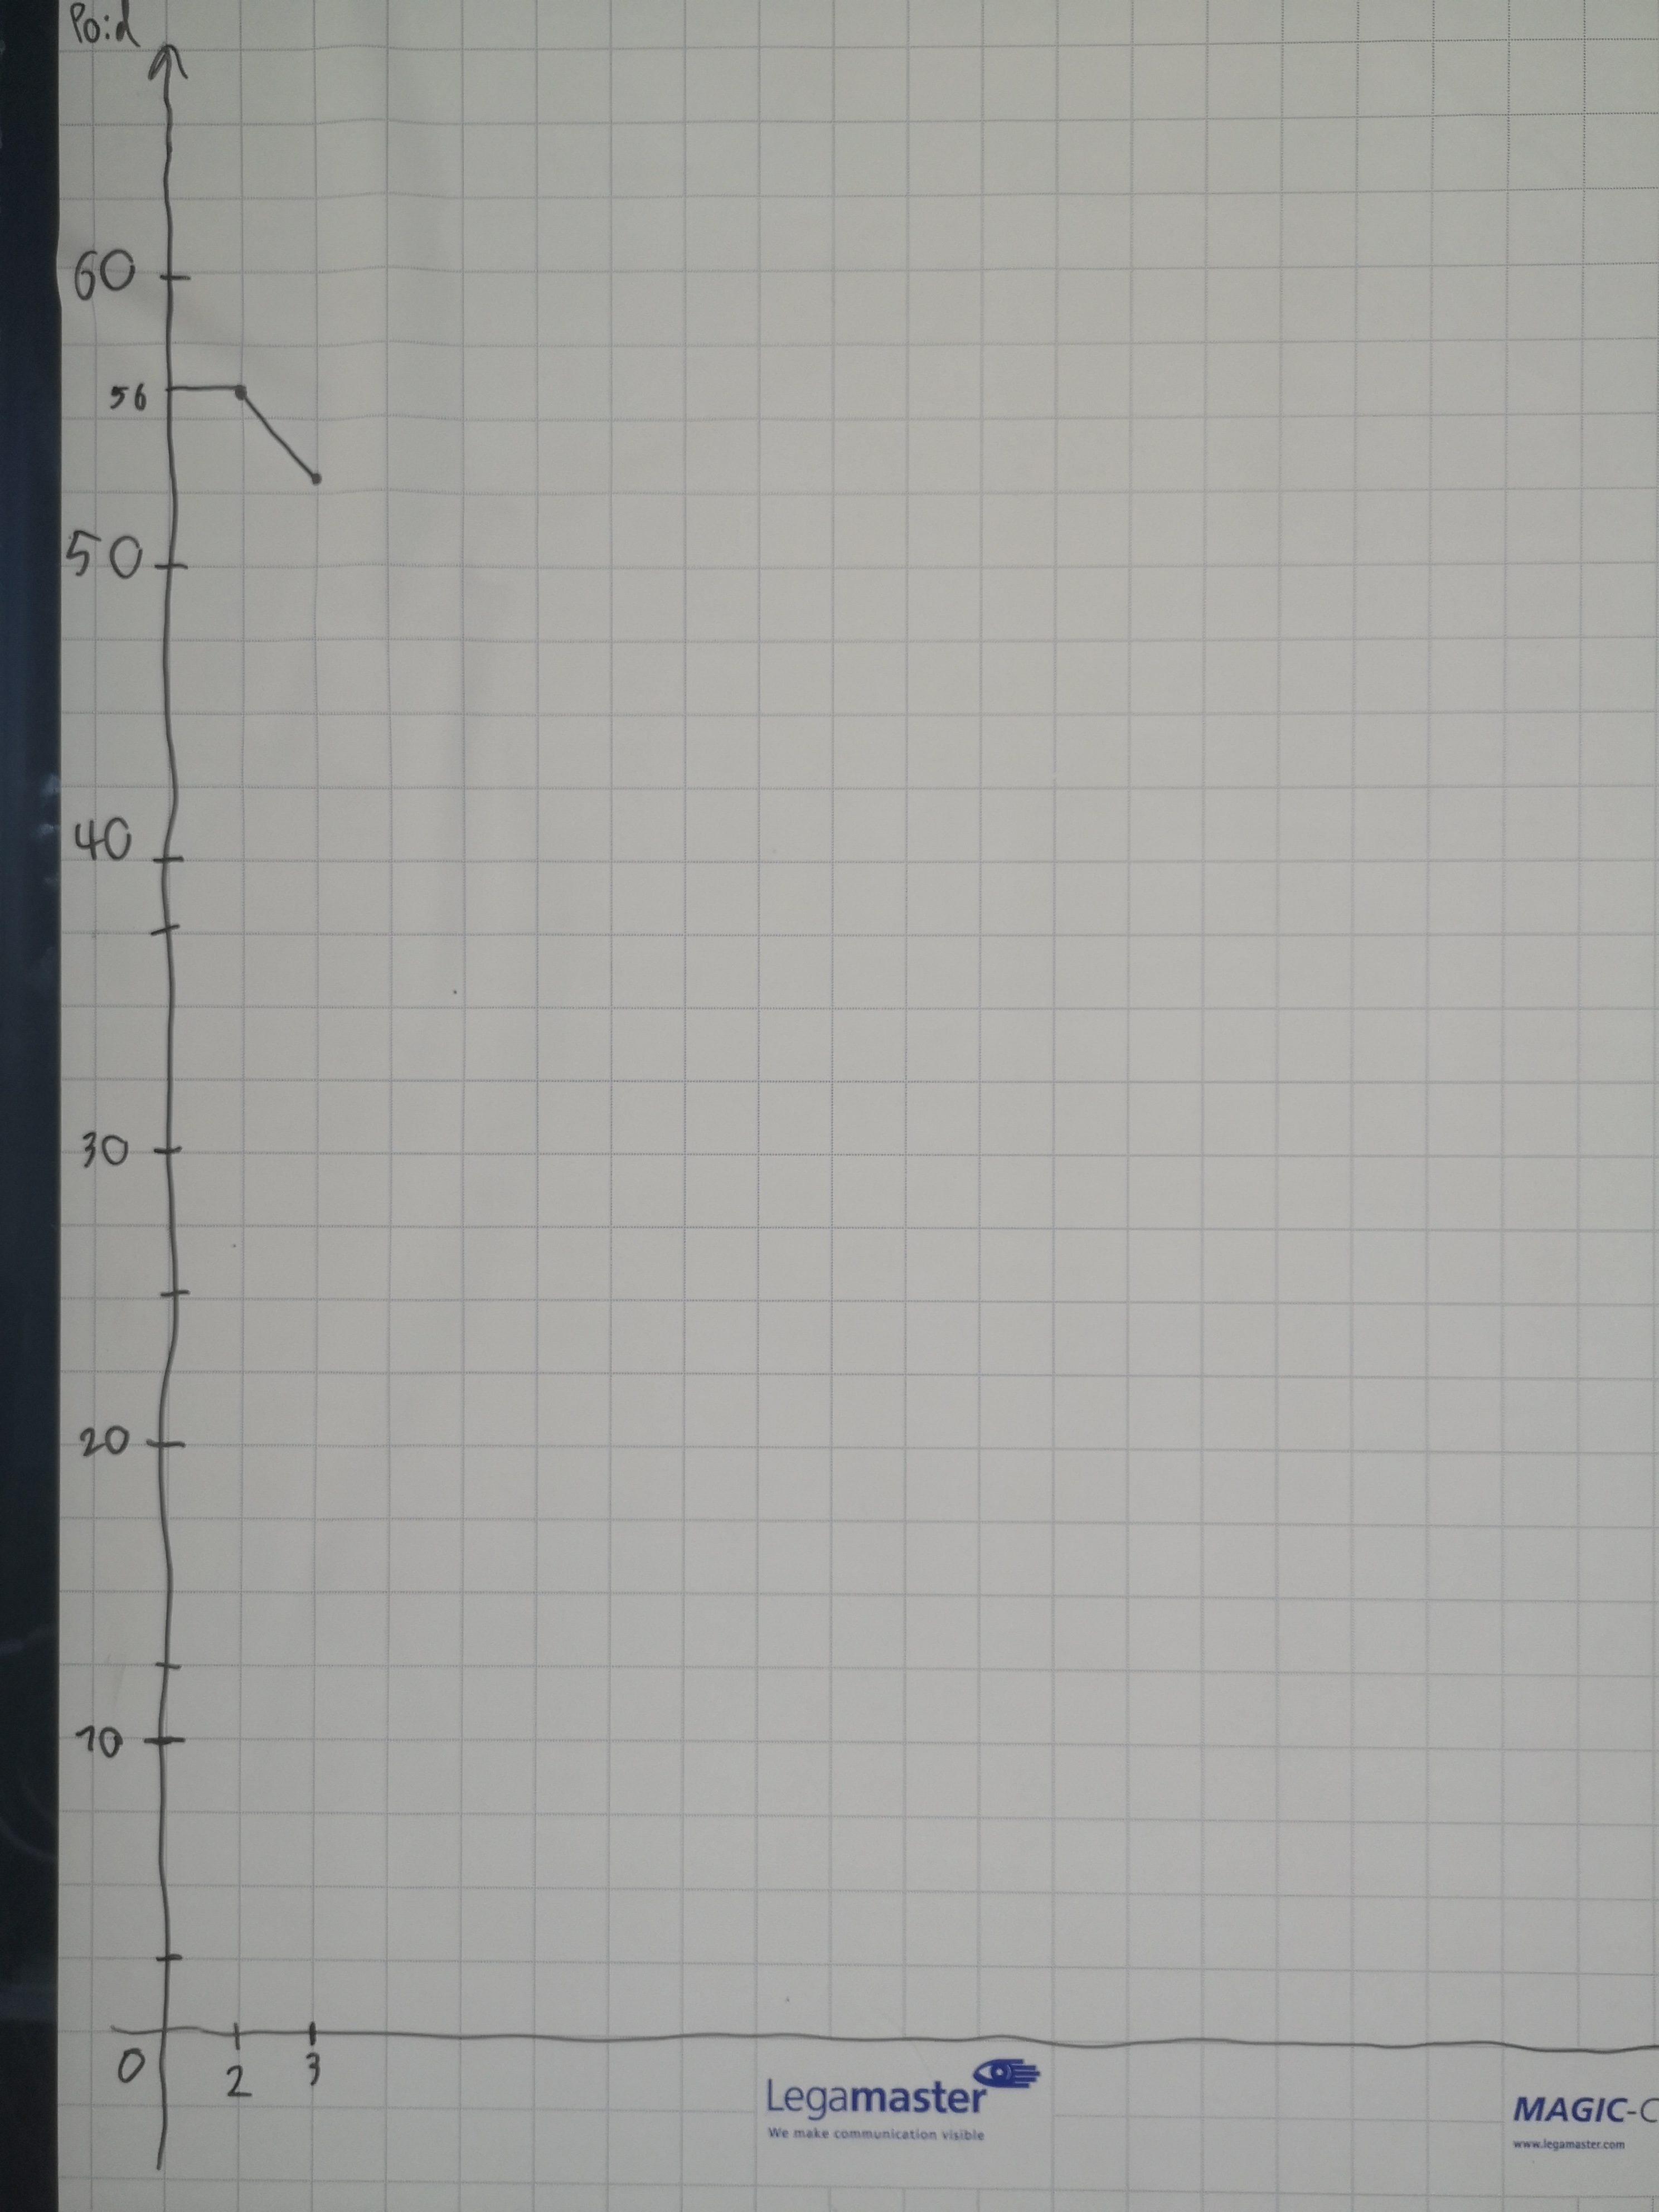 Poid
60
56
50
40
30
20
10
0
2
3
Legamaster
We make communication visible
MAGIC-C
www.legamaster.com